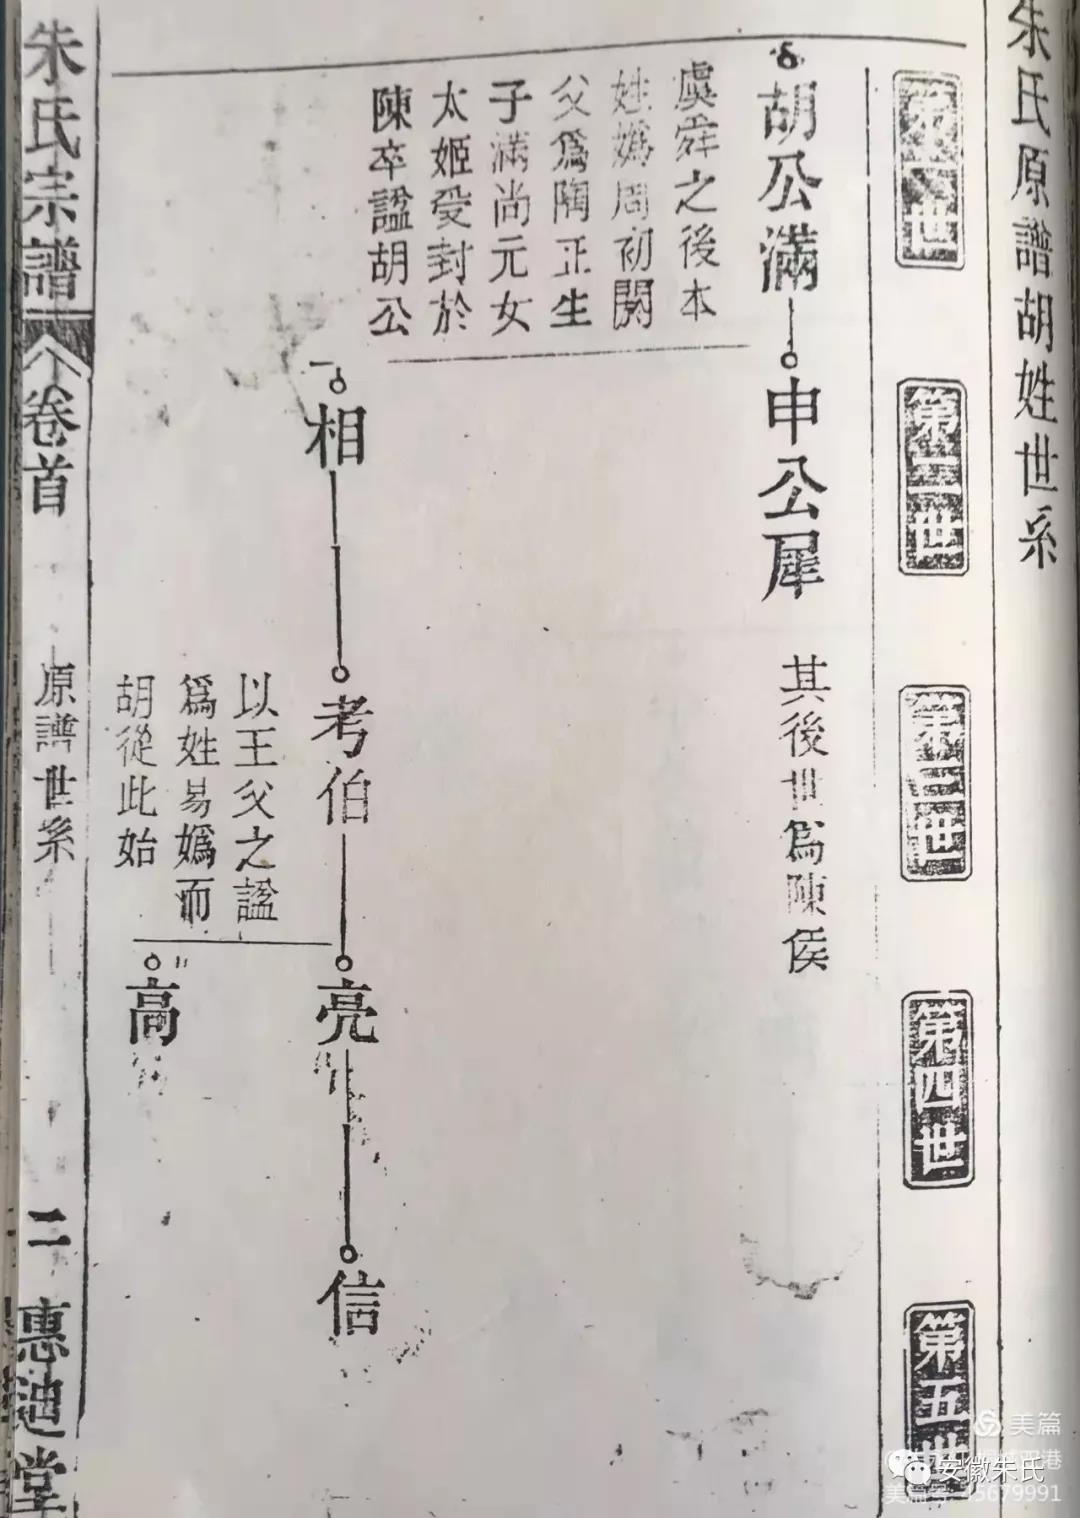 朱氏原譜胡姓世系
第一世
第二世
第三世
第四世
第五世
胡公滿
申公犀
其後世爲陳侯
虞舜之後本
姓嬀周初閼
父爲陶正生
子滿尚元女
太姬受封於
陳卒諡胡公
相
考伯
亮
信
以王父之諡
爲姓易嬀而
胡從此始
高
朱氏宗譜
卷首
原譜世系
二
惠迪堂
美篇
安徽朱氏